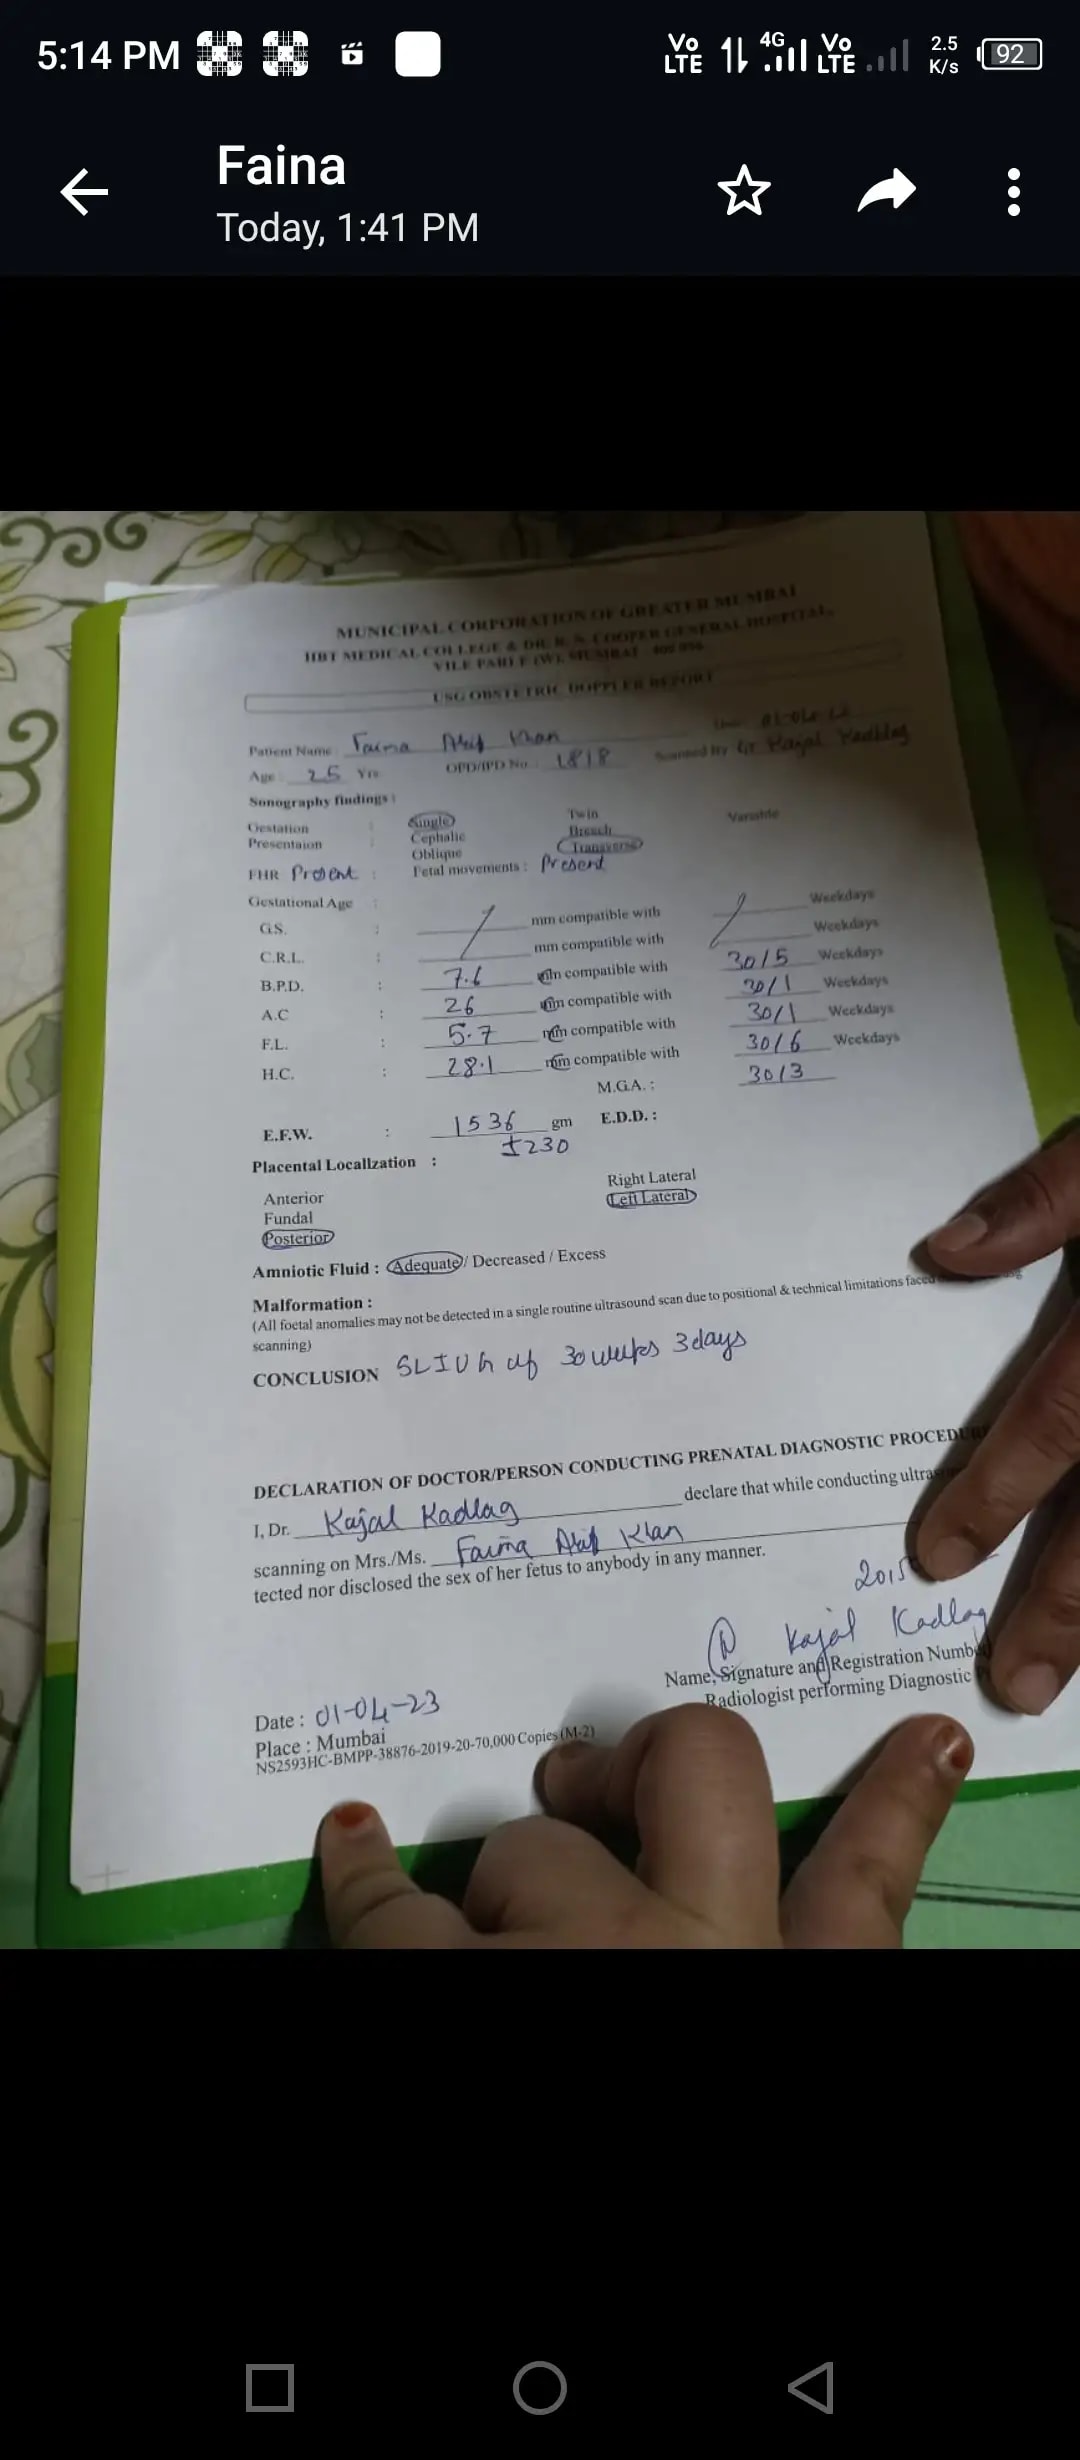 5:14 PM
Vo LTE 4G Vo LTE 2.5 K/s 92
Faina
Today, 1:41 PM
MUNICIPAL CORPORATION OF GREATER MUMBAI
HBT MEDICAL COLLEGE & DR. R. N. COOPER GENERAL HOSPITAL,
VILE PARLE (W), MUMBAI
USG OBSTETRIC DOPPLER REPORT
Patient Name : Faina Khan
Age : 25 Yrs OPD/IPD No. 1818 Scanned By Dr Kajal Kadlag
Sonography findings :
Gestation : Single Twin Variable
Presentaion : Cephalic Breech
Oblique Transverse
FHR Present : Fetal movements : Present
Gestational Age :
G.S. : mm compatible with Weekdays
C.R.L. : mm compatible with Weekdays
B.P.D. : 7.6 compatible with 30/5 Weekdays
A.C : 26 compatible with 30/1 Weekdays
F.L. : 5.7 compatible with 30/1 Weekdays
H.C. : 28.1 compatible with 30/6 Weekdays
M.G.A. : 30/3
E.F.W. : 1536 gm E.D.D. :
±230
Placental Locallzation :
Anterior Right Lateral
Fundal Left Lateral
Posterior
Amniotic Fluid : Adequate / Decreased / Excess
Malformation :
(All foetal anomalies may not be detected in a single routine ultrasound scan due to positional & technical limitations faced
scanning)
CONCLUSION SLIUG of 30 weeks 3 days
DECLARATION OF DOCTOR/PERSON CONDUCTING PRENATAL DIAGNOSTIC PROCEDURE
I, Dr. Kajal Kadlag declare that while conducting
scanning on Mrs./Ms. Faina Khan
tected nor disclosed the sex of her fetus to anybody in any manner.
2015
Kajal Kadlag
Name, Signature and Registration
Radiologist performing Diagnostic
Date : 01-04-23
Place : Mumbai
NS2593HC-BMPP-38876-2019-20-70,000 Copies (M-2)